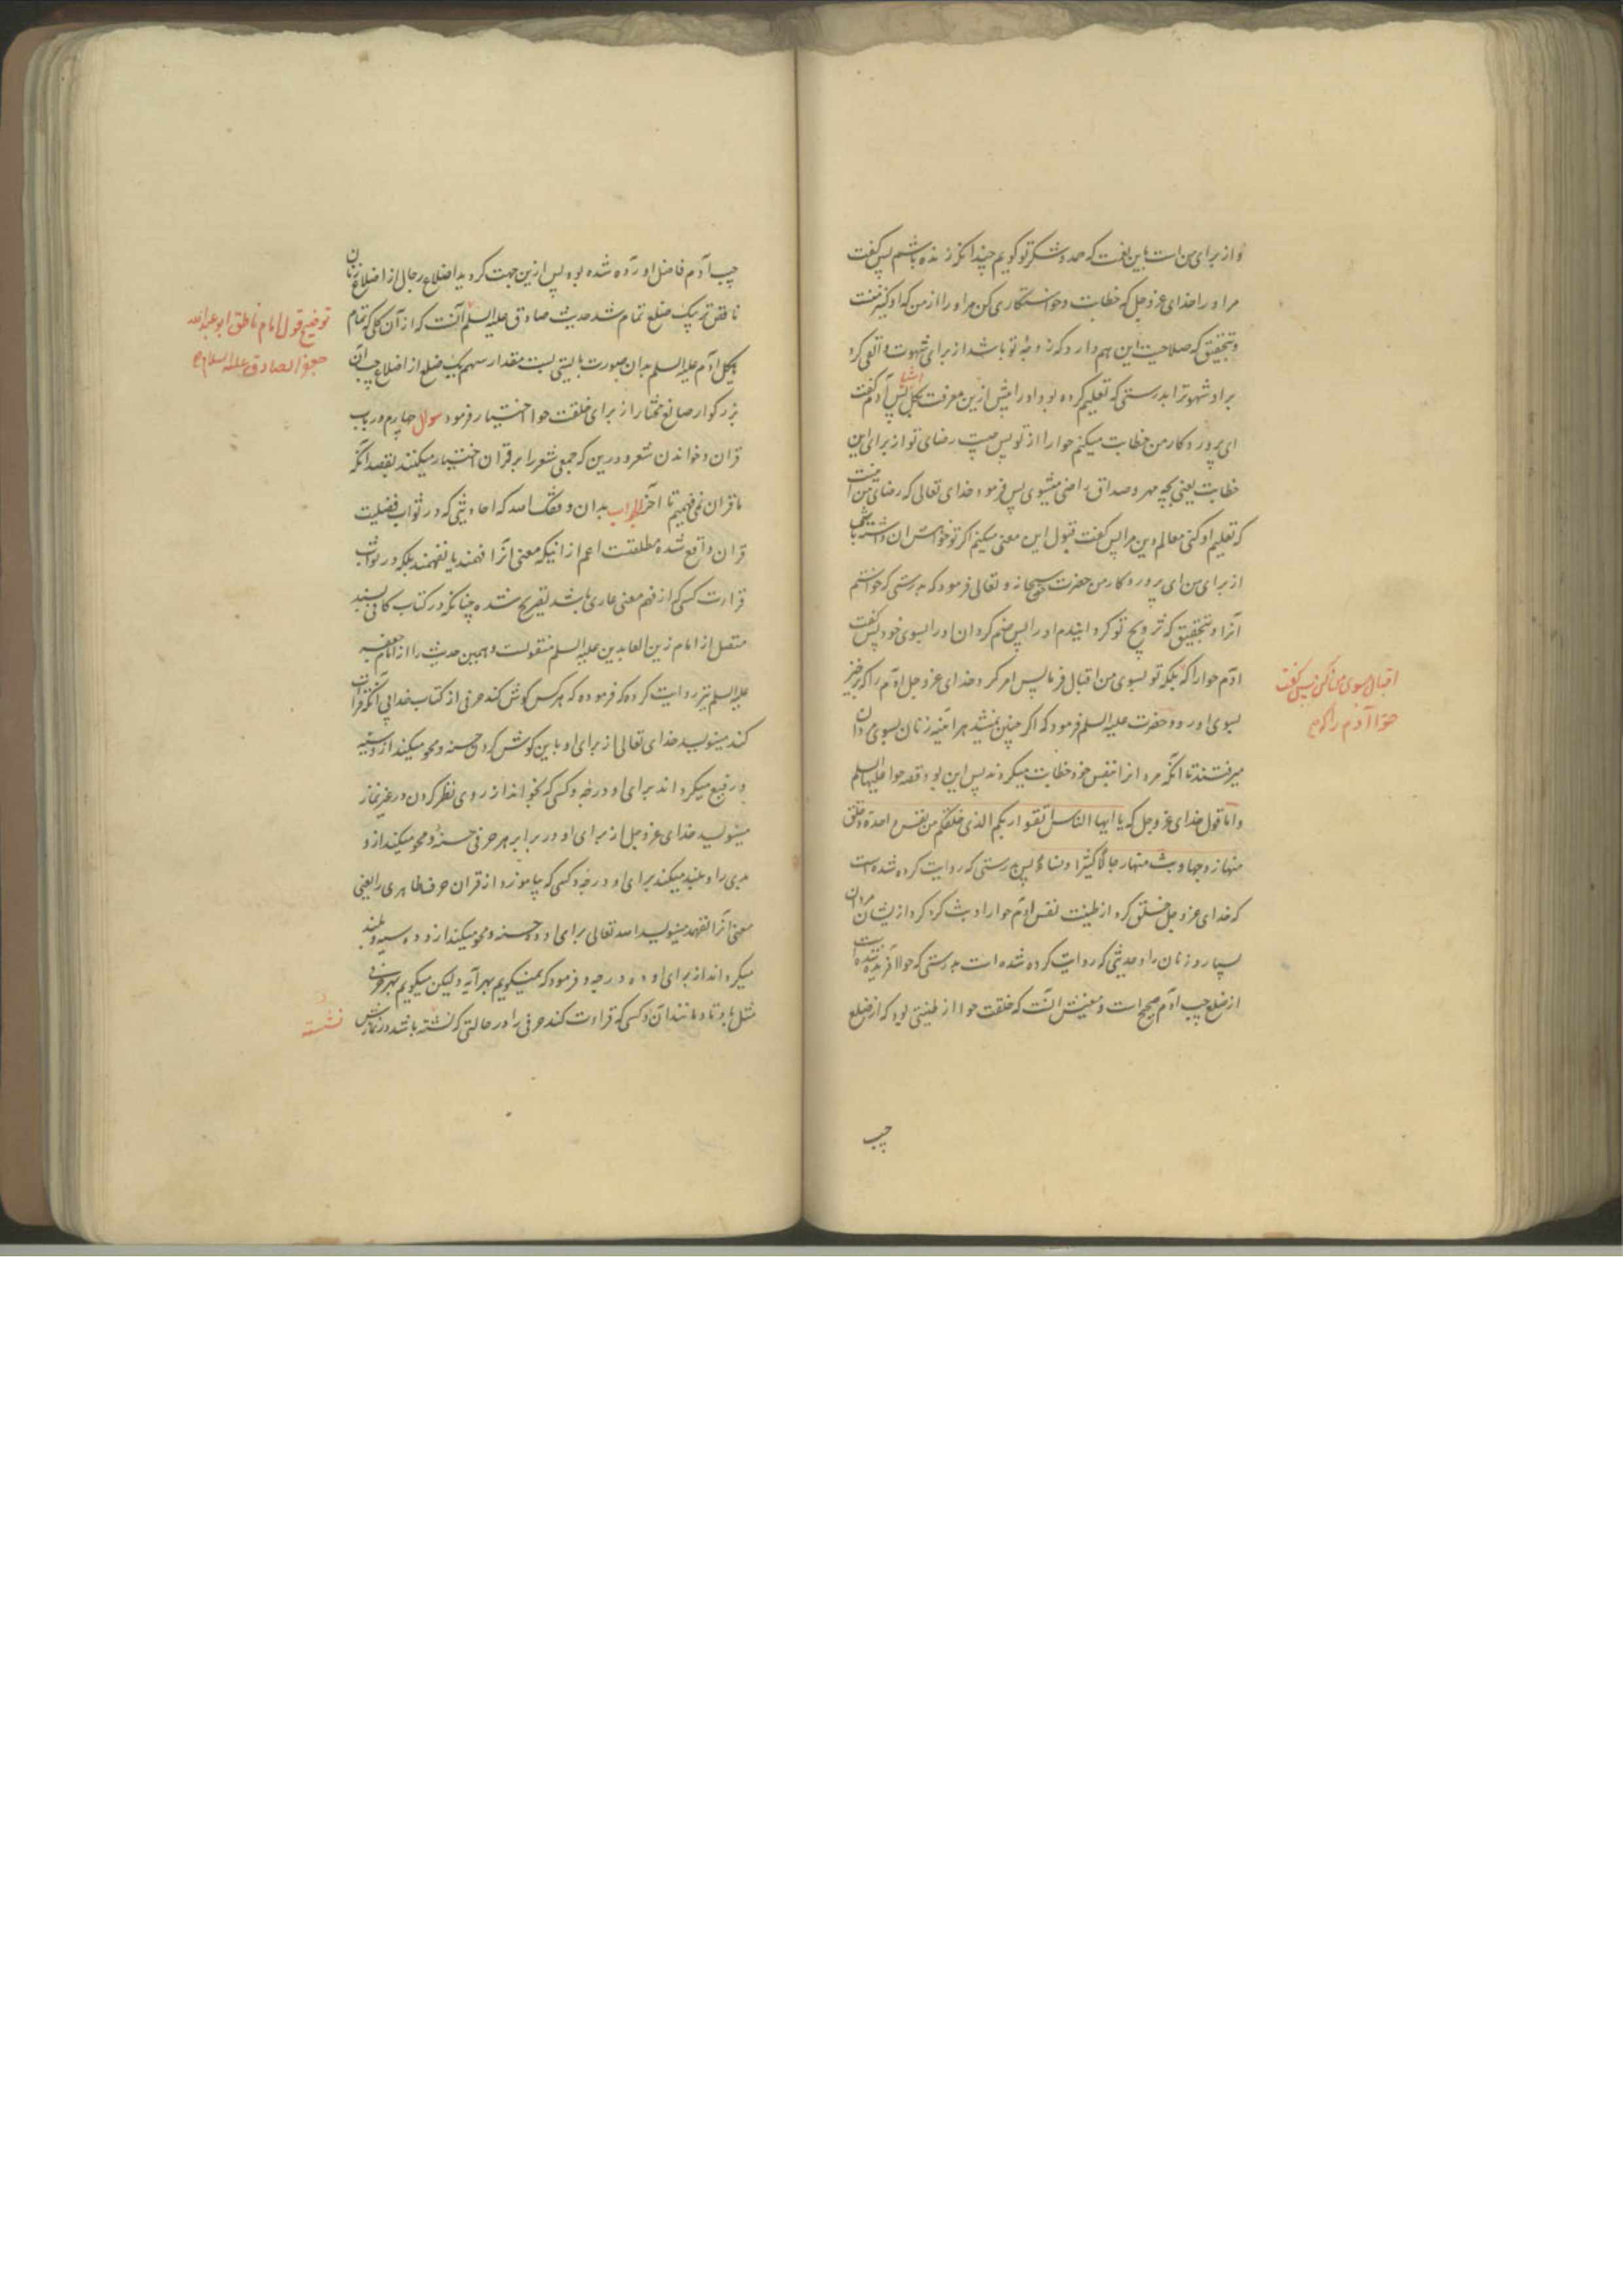 و از برای من است باین نعمت که حمد و شکر تو کویم چندانکه زنده باشم پس کفت
مر او را خدای عز و جل که خطابت و خواستکاری کن مر او را از من که او کنیز منست
و بتحقیق که صلاحیت این هم دارد که زوجهٔ تو باشد از برای شهوت و القی کرد
بر او شهوت را بدرستی که تعلیم کرده بود او را پیش ازین معرفت بکل اشیا پس آدم کفت
ای پروردکار من خطابت میکنم حوا را از تو پس چیست رضای تو از برای این
خطابت یعنی بچه مهر و صداق راضی میشوی پس فرمود خدای تعالی که رضای من آنست
که تعلیم او کنی معالم دین مرا پس کفت قبول این معنی میکنم اکر تو خواهش آن داشته باشی
از برای من ای پروردکار من حضرت حق سبحانه و تعالی فرمود که بدرستی که خواستم
آنرا و بتحقیق که تزویج تو کردانیدم او را پس ضم کردان او را بسوی خود پس کفت
آدم حوا را که بلکه تو بسوی من اقبال فرما پس امر کرد خدای عز و جل آدم را که برخیز
اقبال بسوی من کن پس کفت
حوا آدم را که
بسوی او رو و حضرت علیه السلم فرمود که اکر چنین نمیشد هر آینه زنان بسوی مردان
میرفتند تا آنکه مردانرا بنفس خود خطابت میکردند پس این بود قصه حوا علیها السلم
و اما قول خدای عز و جل که یا ایها الناس اتقوا ربکم الذی خلقکم من نفس واحدة و خلق
منها زوجها و بث منهما رجالا کثیرا و نساء پس بدرستی که روایت کرده شده است
که خدای عز و جل خلق کرد از طینت نفس آدم حوا را و بث کرد از ایشان مردان
بسیار و زنان را و حدیثی که روایت کرده شده است بدرستی که حوا آفریده شده است
از ضلع چپ آدم صحیح است و معنیش آنست که خلقت حوا از طینتی بود که از ضلع
چپ
چپ آدم فاضل آورده شده بود پس ازین جهت کردید اضلاع رجال از اضلاع زنان
ناقص تر بیک ضلع تمام شد حدیث صادق علیه السلم آنست که از آن کلی که تمام
توضیح قول امام ناطق ابو عبدالله
جعفر الصادق علیه السلام
هیکل آدم علیه السلم بدان صورت بایستی بست مقدار سهم یک ضلع از اضلاع چپ آن
بزرکوار صانع مختار از برای خلقت حوا اختیار فرمود سوال چهارم در باب
قران و خواندن شعر و درین که جمعی شعر را بر قران اختیار میکنند بقصد آنکه
ما قران نمی فهمیم تا آخر الجواب بدان وفقک الله که احادیثی که در ثواب فضیلت
قران واقع شده مطلقست اعم از اینکه معنی آنرا فهمند یا نفهمند بلکه در ثواب
قرائت کسی که از فهم معنی عاری باشد تصریح شده چنانکه در کتاب کافی بسند
متصل از امام زین العابدین علیه السلم منقولست و همین حدیث را از امام جعفر
علیه السلم نیز روایت کرده که فرموده که هر کس کوش کند حرفی از کتاب خدا بی آنکه قرائت
کند مینویسد خدای تعالی از برای او باین کوش کردن حسنه و محو میکند ازو سیئه
و رفیع میکرداند برای او درجه و کسی که بخواند از روی نظر کردن در غیر نماز
مینویسد خدای عز و جل از برای او در برابر هر حرفی حسنهٔ و محو میکند ازو
بدی را و بلند میکند برای او درجه و کسی که بیاموزد از قران حرف ظاهری را یعنی
معنی آنرا نفهمد مینویسد الله تعالی برای او ده حسنه و محو میکند ازو ده سیئه و بلند
میکرداند از برای او ده درجه و فرمود که نمیکویم بهر آیه و لیکن میکویم بهر حرفی
مثل با و تا و مانند آن و کسی که قراءت کند حرفی را در حالتی که نشسته باشد در نمازش
نشسته